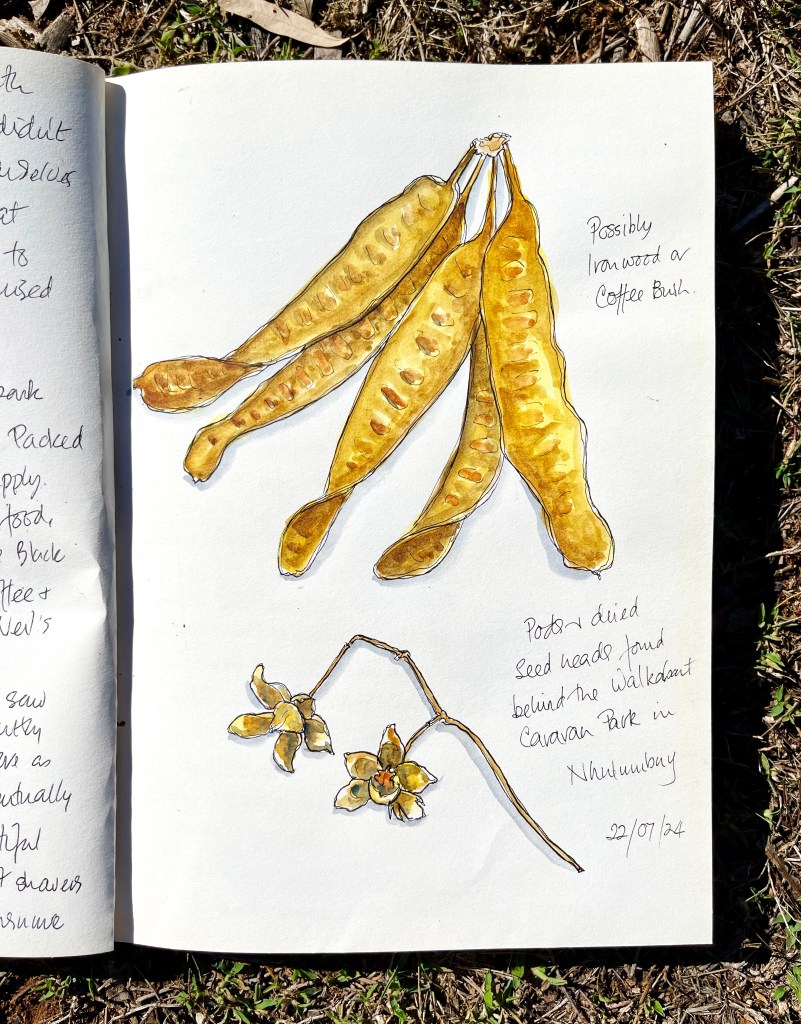 th
didn't
urselves
at
to
used
park
Packed
pply.
food,
e Black
ffee &
Nev's
saw
ve as
entually
tiful
t shavers
nsume
Possibly
Ironwood or
Coffee Bush.
Pods & dried
seed heads found
behind the Walkabout
Caravan Park in
Nhulunbuy
22/07/24